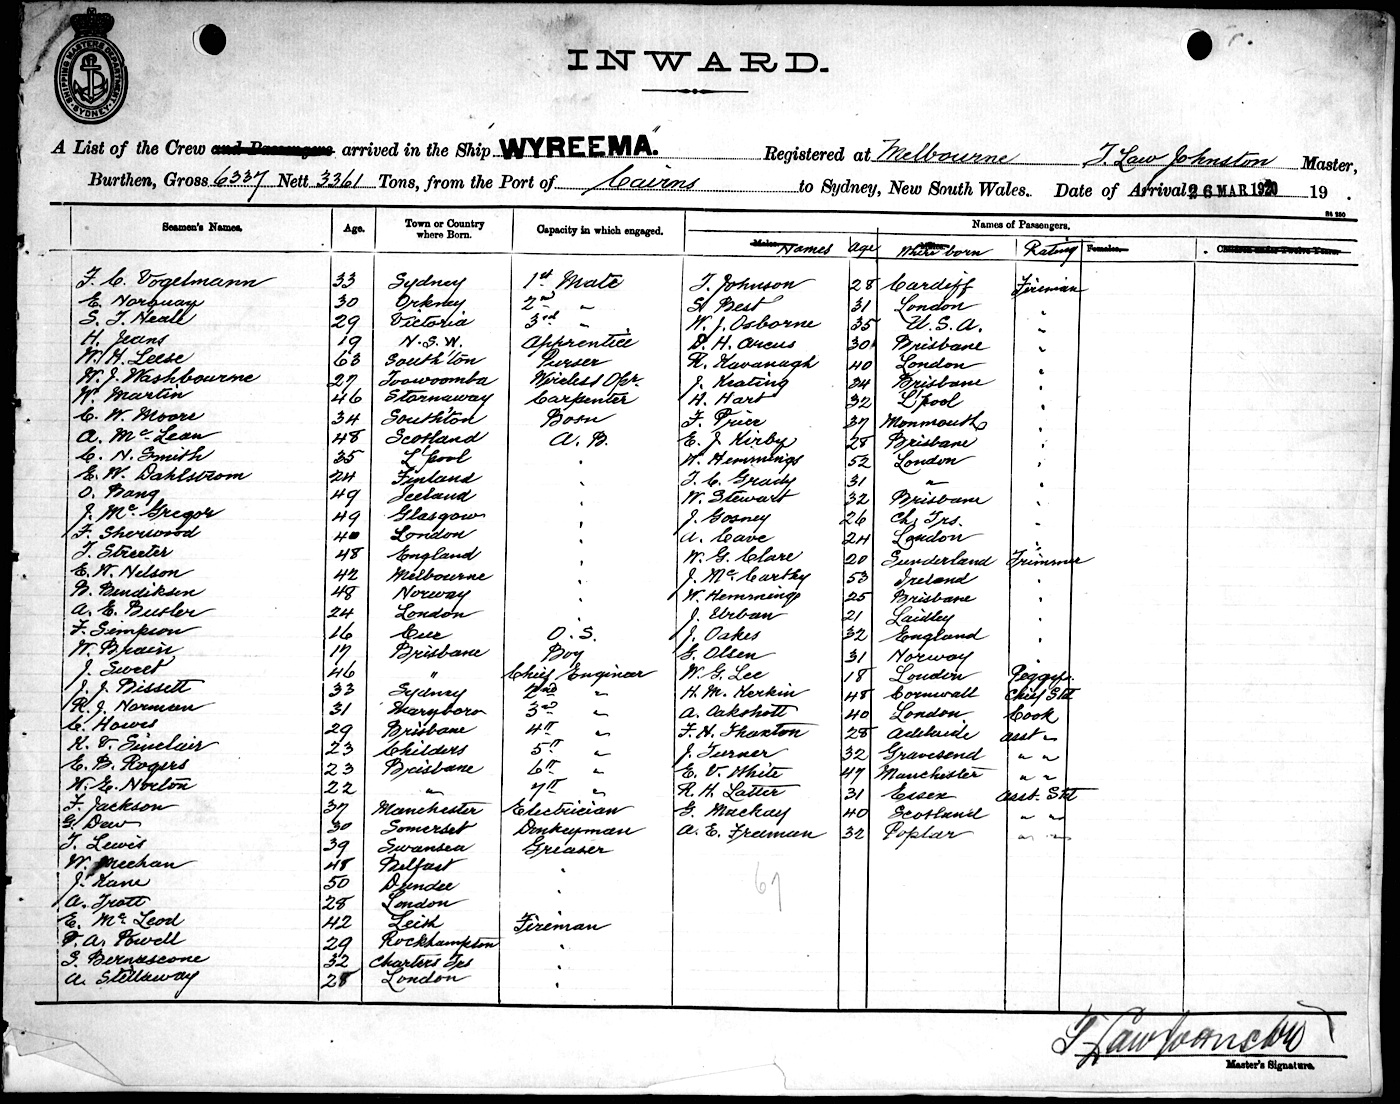 SHIPPING MASTERS DEPARTMENT
SYDNEY
INWARD.
A List of the Crew and Passengers arrived in the Ship "WYREEMA". Registered at Melbourne J. Law Johnston Master,
Burthen, Gross 6337 Nett 3361 Tons, from the Port of Cairns to Sydney, New South Wales. Date of Arrival 26 MAR 1920 19 .
Seamen's Names. Age. Town or Country where Born. Capacity in which engaged. Names of Passengers.
Males. Names Age Where born Rating Females. Children under Twelve Years.
F. C. Vogelmann 33 Sydney 1st Mate J. Johnson 28 Cardiff Fireman
E. Norquay 30 Orkney 2nd " S. Best 31 London "
S. J. Neall 29 Victoria 3rd " W. J. Osborne 35 U.S.A. "
H. Jeans 19 N.S.W. Apprentice D. H. Arcus 30 Brisbane "
W. H. Leese 63 South'ton Purser R. Kavanagh 40 London "
W. J. Washbourne 27 Toowoomba Wireless Opr. J. Keating 34 Brisbane "
W. Martin 46 Stornaway Carpenter H. Hart 32 L'pool "
C. W. Moore 34 South'ton Bosn F. Price 37 Monmouth "
A. McLean 48 Scotland A.B. E. J. Kirby 28 Brisbane "
C. N. Smith 35 L'pool " W. Hemmings 52 London "
E. W. Dahlstrom 24 Finland " T. C. Grady 31 " "
O. Bang 49 Iceland " W. Stewart 32 Brisbane "
J. McGregor 49 Glasgow " J. Gosney 26 Ch. Trs. "
F. Sherwood 40 London " A. Cave 24 London "
T. Streeter 48 England " W. G. Clare 20 Sunderland Trimmer
E. W. Nelson 42 Melbourne " J. McCarthy 53 Ireland "
B. Bendiksen 48 Norway " W. Hemmings 25 Brisbane "
A. E. Butler 24 London " J. Urban 21 Laidley "
F. Simpson 16 O.S. J. Oakes 32 England "
W. Brain 17 Brisbane Boy G. Olsen 31 Norway "
J. Sweet 46 " Chief Engineer W. G. Lee 18 London Peggy
J. J. Bissett 33 Sydney 2nd " H. M. Kerkin 48 Cornwall Chief Std
R. J. Norman 31 Maryboro 3rd " A. Oakshott 40 London Cook
C. Howes 29 Brisbane 4th " F. H. Thaxton 28 Adelaide asst "
K. V. Sinclair 23 Childers 5th " J. Turner 32 Gravesend " "
E. B. Rogers 23 Brisbane 6th " E. V. White 47 Manchester " "
W. E. Norton 22 " 7th " R. H. Latter 31 Essex asst. Std
F. Jackson 37 Manchester Electrician G. Mackay 40 Scotland " "
G. Dew 30 Somerset Donkeyman A. E. Freeman 32 Poplar " "
T. Lewis 39 Swansea Greaser
W. Meehan 48 Belfast "
J. Kane 50 Dundee "
A. Trott 28 London "
E. McLeod 42 Leith Fireman
P. A. Powell 29 Rockhampton "
S. Bernascone 32 Charters Trs "
A. Stellaway 28 London "
67
J. Law Johnston
Master's Signature.